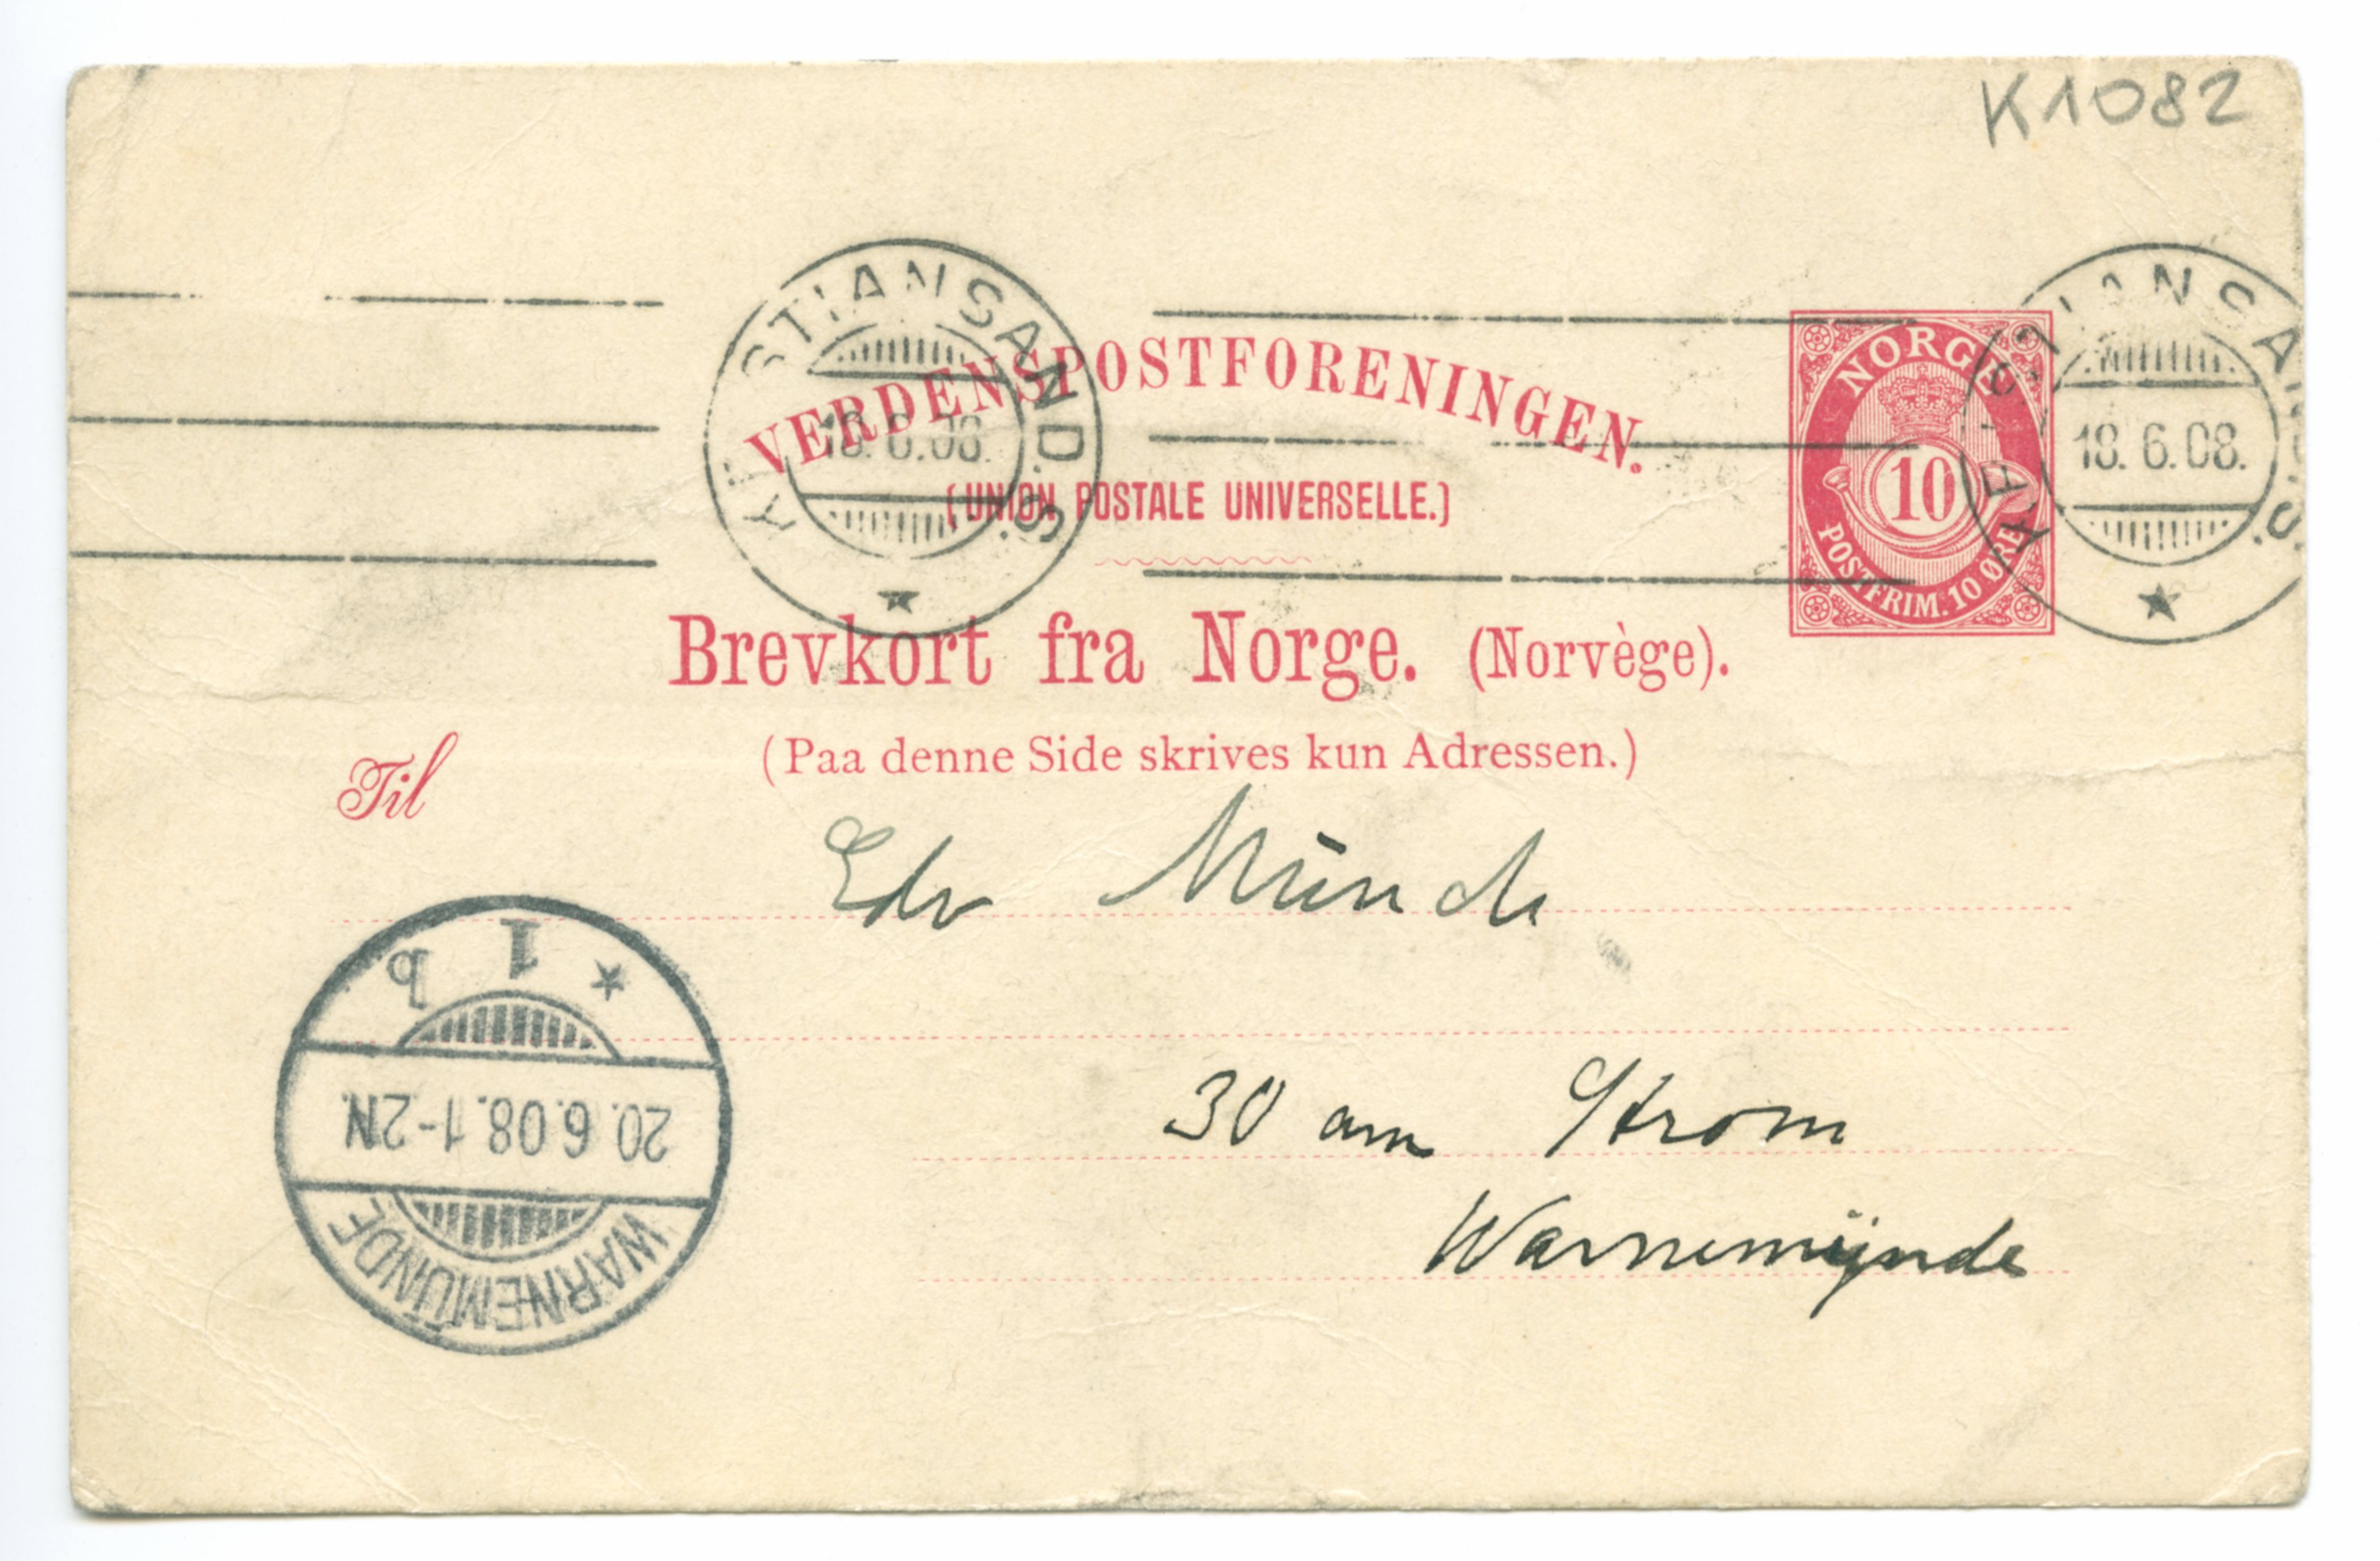 K1082
KRISTIANSAND.S.
18.6.08.
KRISTIANSAND.S.
18.6.08.
VERDENSPOSTFORENINGEN.
(UNION POSTALE UNIVERSELLE.)
NORGE
10
POSTFRIM. 10 ØRE
Brevkort fra Norge. (Norvège).
(Paa denne Side skrives kun Adressen.)
Til
Edv Münch
30 am Strom
Warnemünde
WARNEMÜNDE
20.6.08.1-2N.
1 b